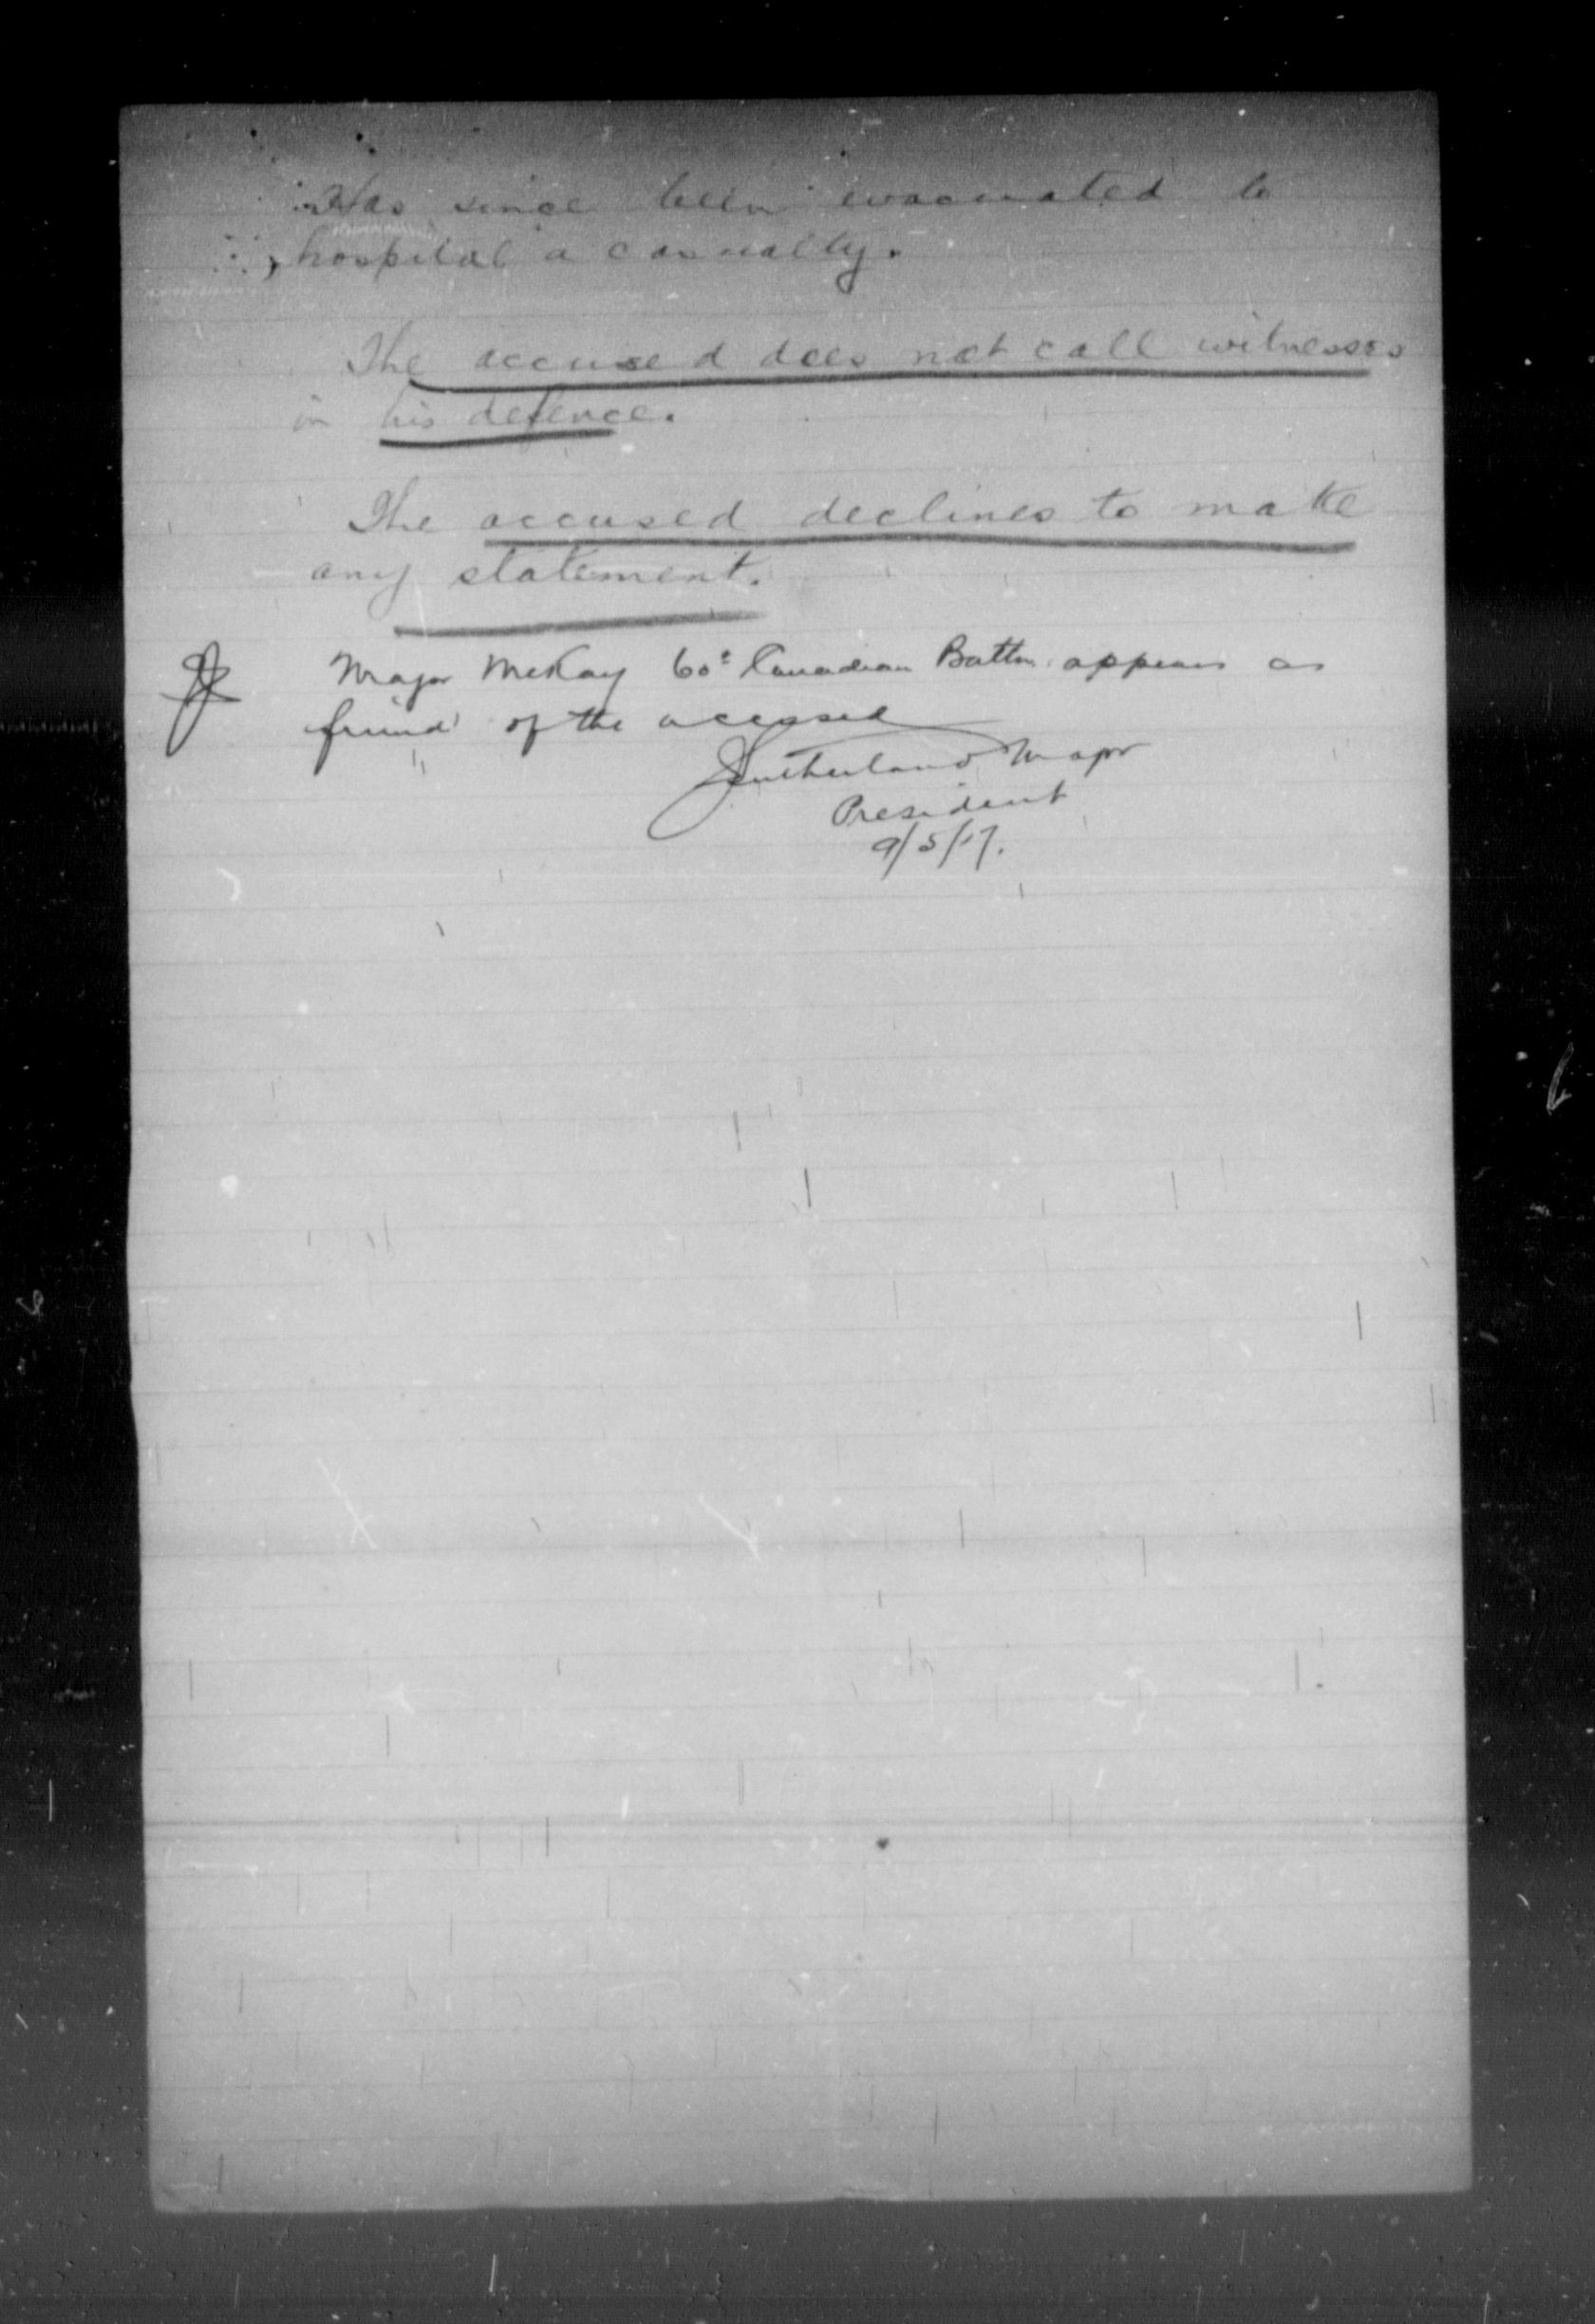 Has since been evacuated to
hospital a casualty.
The accused does not call witnesses
in his defence.
The accused declines to make
any statement.
Major McKay 60th Canadian Battn. appears as
friend of the accused
Sutherland Major
President
9/5/17.